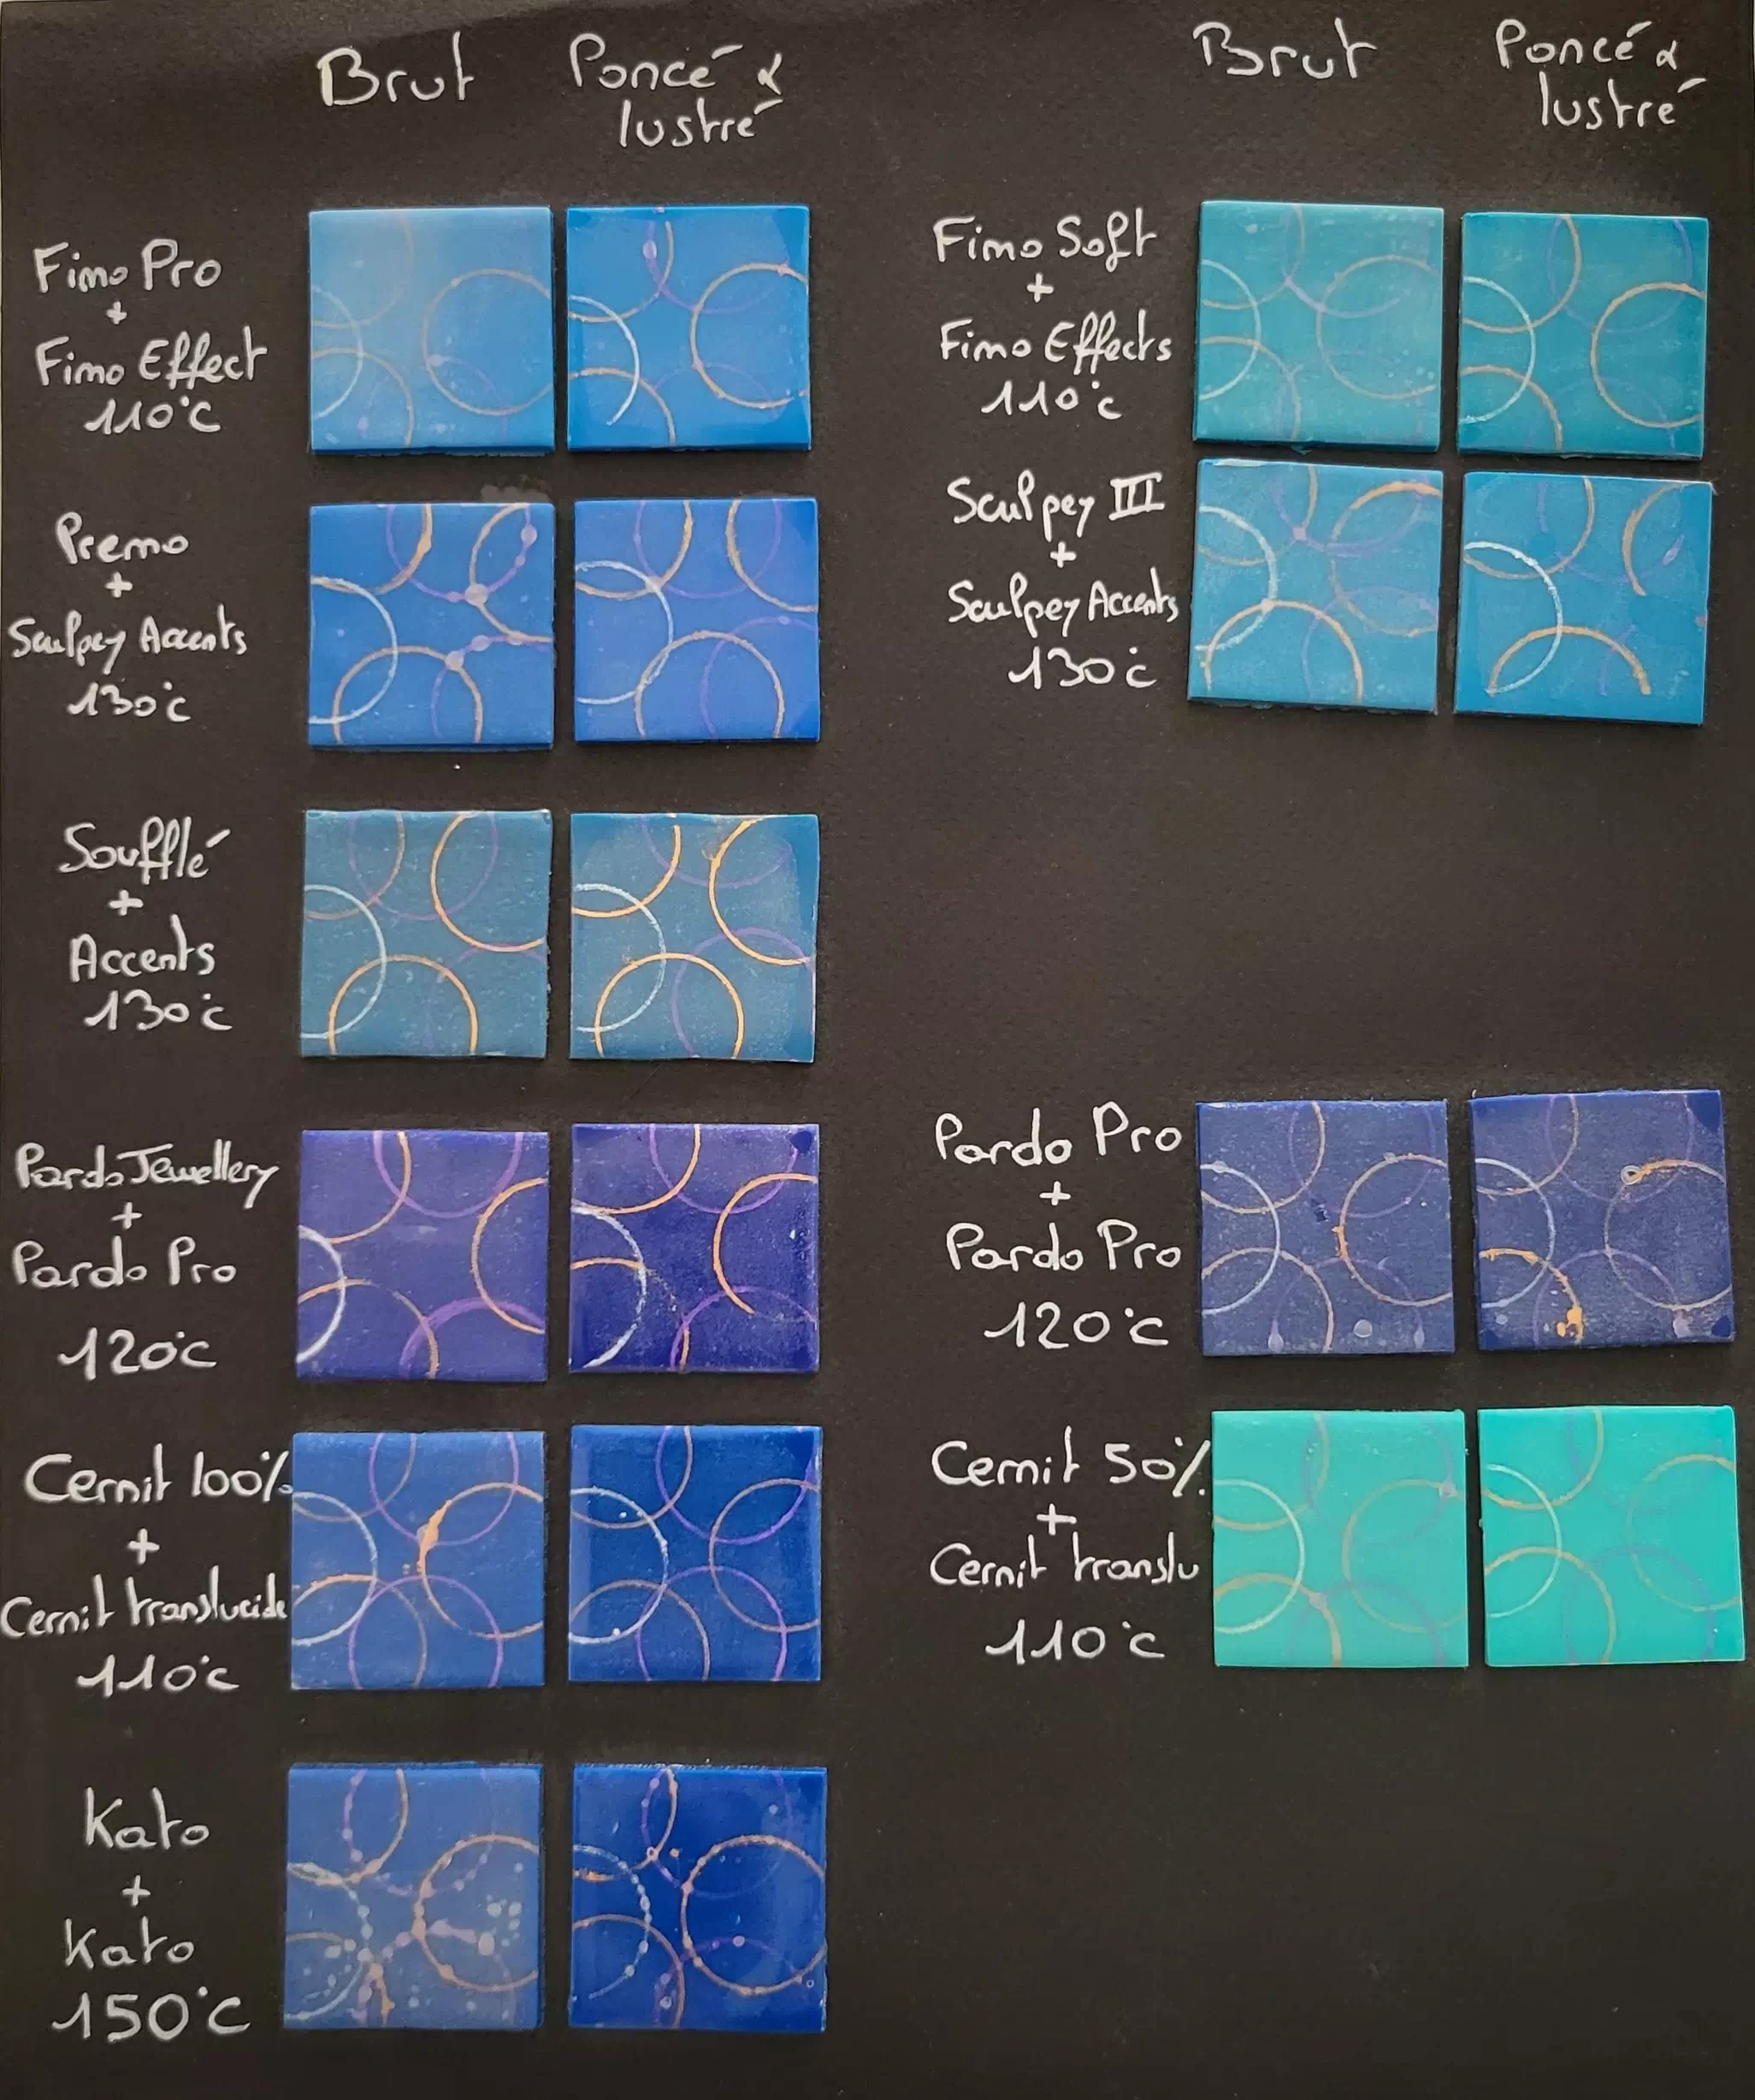 Brut
Poncé &
lustré
Brut
Poncé &
lustré
Fimo Pro
+
Fimo Effect
110°C
Fimo Soft
+
Fimo Effects
110°C
Premo
+
Sculpey Accents
130°C
Sculpey III
+
Sculpey Accents
130°C
Soufflé
+
Accents
130°C
Pardo Jewellery
+
Pardo Pro
120°C
Pardo Pro
+
Pardo Pro
120°C
Cernit 100%
+
Cernit translucide
110°C
Cernit 50%
+
Cernit translu
110°C
Kato
+
Kato
150°C